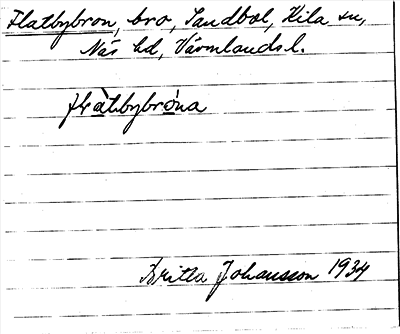 Flatbybron, bro, Sandbol, Kila sn,
Näs hd, Värmlands l.
flàtbybròna
Britta Johansson 1934